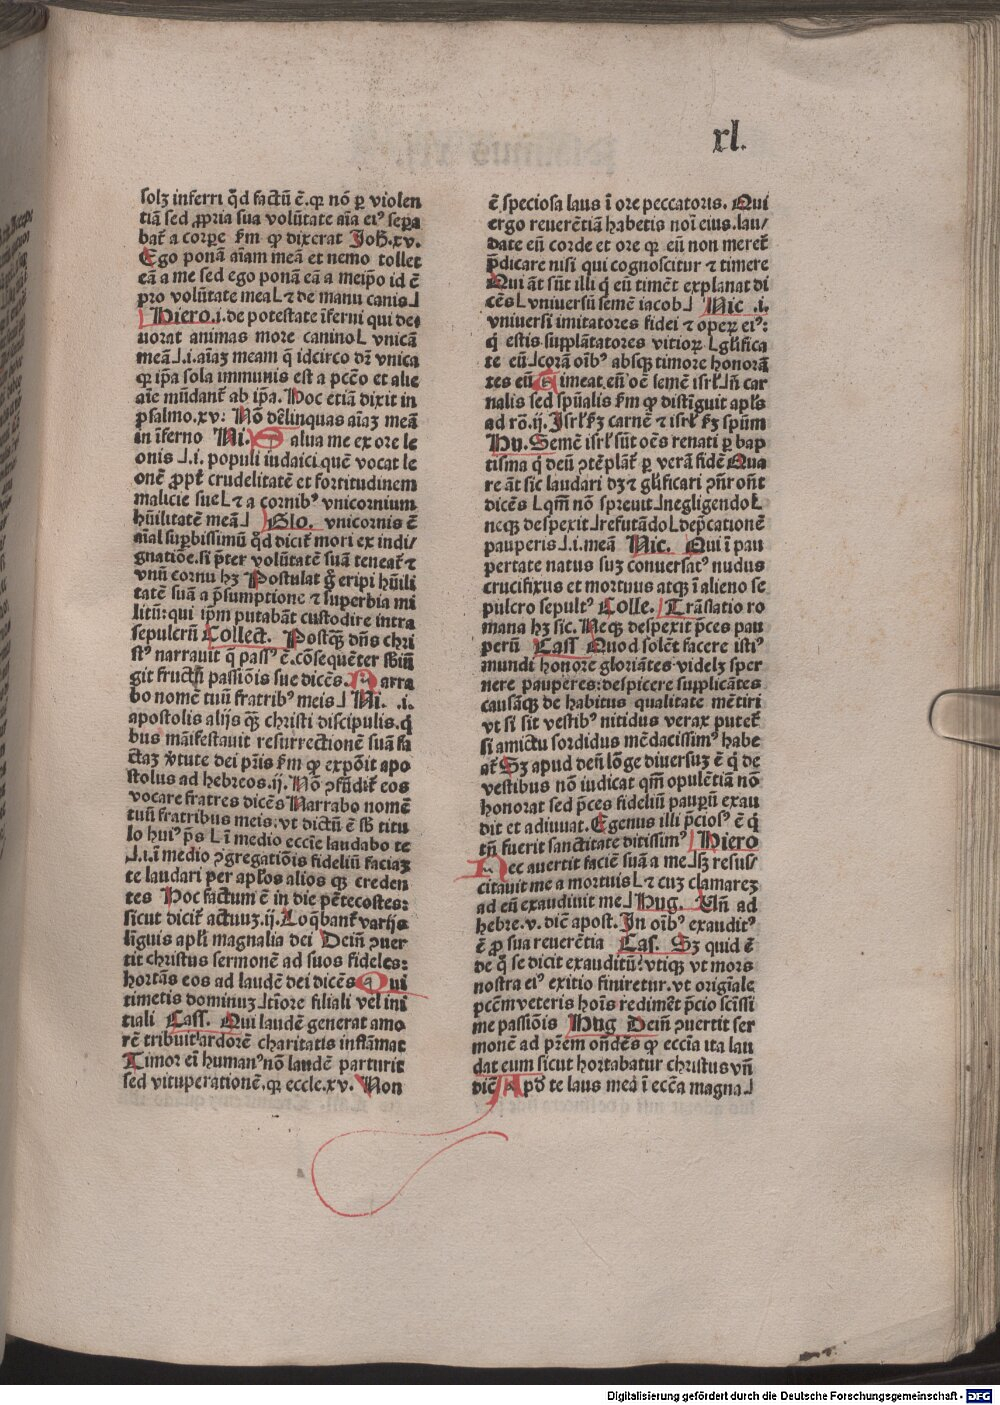 xl.
solꝫ inferri qd̄ factū ē.qꝛ nō ꝑ violen
tiā sed ꝓpria sua volūtate aīa eiꝰ sepa
bat̄ a corꝑe ẜm ꝙ dixerat Joh.xv.
Ego ponā aīam meā et nemo tollet
eā a me sed ego ponā eā a meip̄o id ē
pro volūtate mea⅃ L⁊ de manu canis⅃
Hiero.i.de potestate īferni qui de⸗
uorat animas more canino L vnicā
meā⅃.i.aīaꝫ meam q̄ idcirco dꝛ̄ vnica
qꝛ ip̄a sola immunis est a pctō et alie
aīe mūdant̄ ab ip̄a. Hoc etiā dixit in
psalmo.xv: Nō delinquas aīaꝫ meā
in īferno Ni. Salua me ex ore le
onis⅃.i. populi iudaici quē vocat le
onē ꝓpt̄ crudelitatē et fortitudinem
malicie sue L⁊ a cornibꝰ vnicornium
hūilitatē meā⅃ Glo. vnicornis ē
aīal suꝑbissimū qd̄ dicit̄ mori ex indi/
gnatiōe.si p̄ter volūtatē suā teneat̄ ⁊
vnū cornu hꝫ Postulat g̊ eripi hūili
tatē suā a p̄sumptione ⁊ superbia mi
litū:qui ip̄m putabāt custodire intra
sepulcrū Collect. Postqꝫ dn̄s chri
stꝰ narrauit q̄ passꝰ ē.cōsequēter sbiū
git fructū passiōis sue dicēs. Narra
bo nomē tuū fratribꝰ meis⅃ Ni. .i.
apostolis alijs qꝫ christi discipulis.q̇
bus māifestauit resurrectionē suā fa
ctaꝫ v̄tute dei pr̄is ẜm ꝙ expōit apo
stolus ad hebreos.ij. Nō ꝯfūdit̄ eos
vocare fratres dicēs Narrabo nomē
tuū fratribus meis.vt dictū ē sb̄ titu
lo huiꝰ ps̄ Lī medio eccīe laudabo te
⅃.i.ī medio ꝯgregatiōis fideliū faciaꝫ
te laudari per apl̄os alios qꝫ creden
tes Hoc factum ē in die pētecostes:
sicut dicit̄ actuuꝫ.ij.Loq̄bant̄ varijs
līguis apl̄i magnalia dei Dein̄ ꝯuer
tit christus sermonē ad suos fideles:
hortās eos ad laudē dei dicēs Qui
timetis dominuꝫ⅃tīore filiali vel ini
tiali Cass. Qui laudē generat amo
rē tribuit ardorē charitatis inflāmat
Timor eī humanꝰ nō laudē parturit
sed vituperationē.qꝛ eccle.xv. Non
ē speciosa laus ī ore peccatoris. Qui
ergo reuerētiā habetis noī eius.lau/
date eū corde et ore qꝛ eū non meret̄
p̄dicare nisi qui cognoscitur ⁊ timere
Qui āt sūt illi q̇ eū timēt explanat di
cēs L vniuersū semē iacob⅃ Nic .i.
vniuersi imitatores fidei ⁊ opeꝝ eiꝰ:
q̇ estis supplātatores vitioꝝ L gl̄ifica
te eū⅃corā oībꝰ absqꝫ timore honorā
tes eū Timeat eū oē semē isrl̄⅃n̄ car
nalis sed spūalis ẜm ꝙ distīguit apl̄s
ad ro.ij. Isrl̄ ẜꝫ carnē ⁊ isrl̄ ẜꝫ spūm
Hu. Semē isrl̄ sūt oēs renati ꝑ bap
tisma q̇ deū ꝯtēplāt̄ ꝑ verā fidē Qua
re āt sic laudari dꝫ ⁊ gl̄ificari ꝯn̄r on̄t
dicēs L qm̄ nō spreuit⅃negligendo L
necqꝫ despexit⅃refutādo L dep̄cationē
pauperis⅃.i.meā Nic. Qui ī pau
pertate natus suꝫ conuersatꝰ nudus
crucifixus et mortuus atqꝫ ī alieno se
pulcro sepultꝰ Colle. Trāslatio ro
mana hꝫ sic. Neqꝫ despexit p̄ces pau
perū Cass Quod solēt facere istiꝰ
mundi honore gloriātes videlꝫ sper
nere pauperes:despicere supplicātes
causāqꝫ de habitus qualitate mētiri
vt si sit vestibꝰ nitidus verax putet̄
si amictu sordidus mēdacissimꝰ habe
at̄ Sꝫ apud deū lōge diuersuꝫ ē q̇ de
vestibus nō iudicat qm̄ opulētiā nō
honorat sed p̄ces fideliū pauꝑū exau
dit et adiuuat. Egenus illi p̄ciosꝰ ē q̇
tn̄ fuerit sanctitate ditissimꝰ Hiero
Nec auertit faciē suā a me⅃sꝫ resus/
citauit me a mortuis L⁊ cuꝫ clamareꝫ
ad eū exaudiuit me⅃ Hug. Un̄ ad
hebre.v. dic̄ apost. In oībꝰ exauditꝰ
ē ꝓ sua reuerētia Cas. Sꝫ quid ē
de q̊ se dicit exauditū:vtiqꝫ vt mors
nostra eiꝰ exitio finiretur.vt origīale
pctm̄ veteris hoīs redimēt p̄cio scīssi
me passiōis Hug Dein̄ ꝯuertit ser
monē ad pr̄em on̄dēs ꝙ eccīa ita lau
dat eum sicut hortabatur christus vn̄
dic̄ Apd̄ te laus mea ī ecc̄a magna⅃
Digitalisierung gefördert durch die Deutsche Forschungsgemeinschaft - DFG